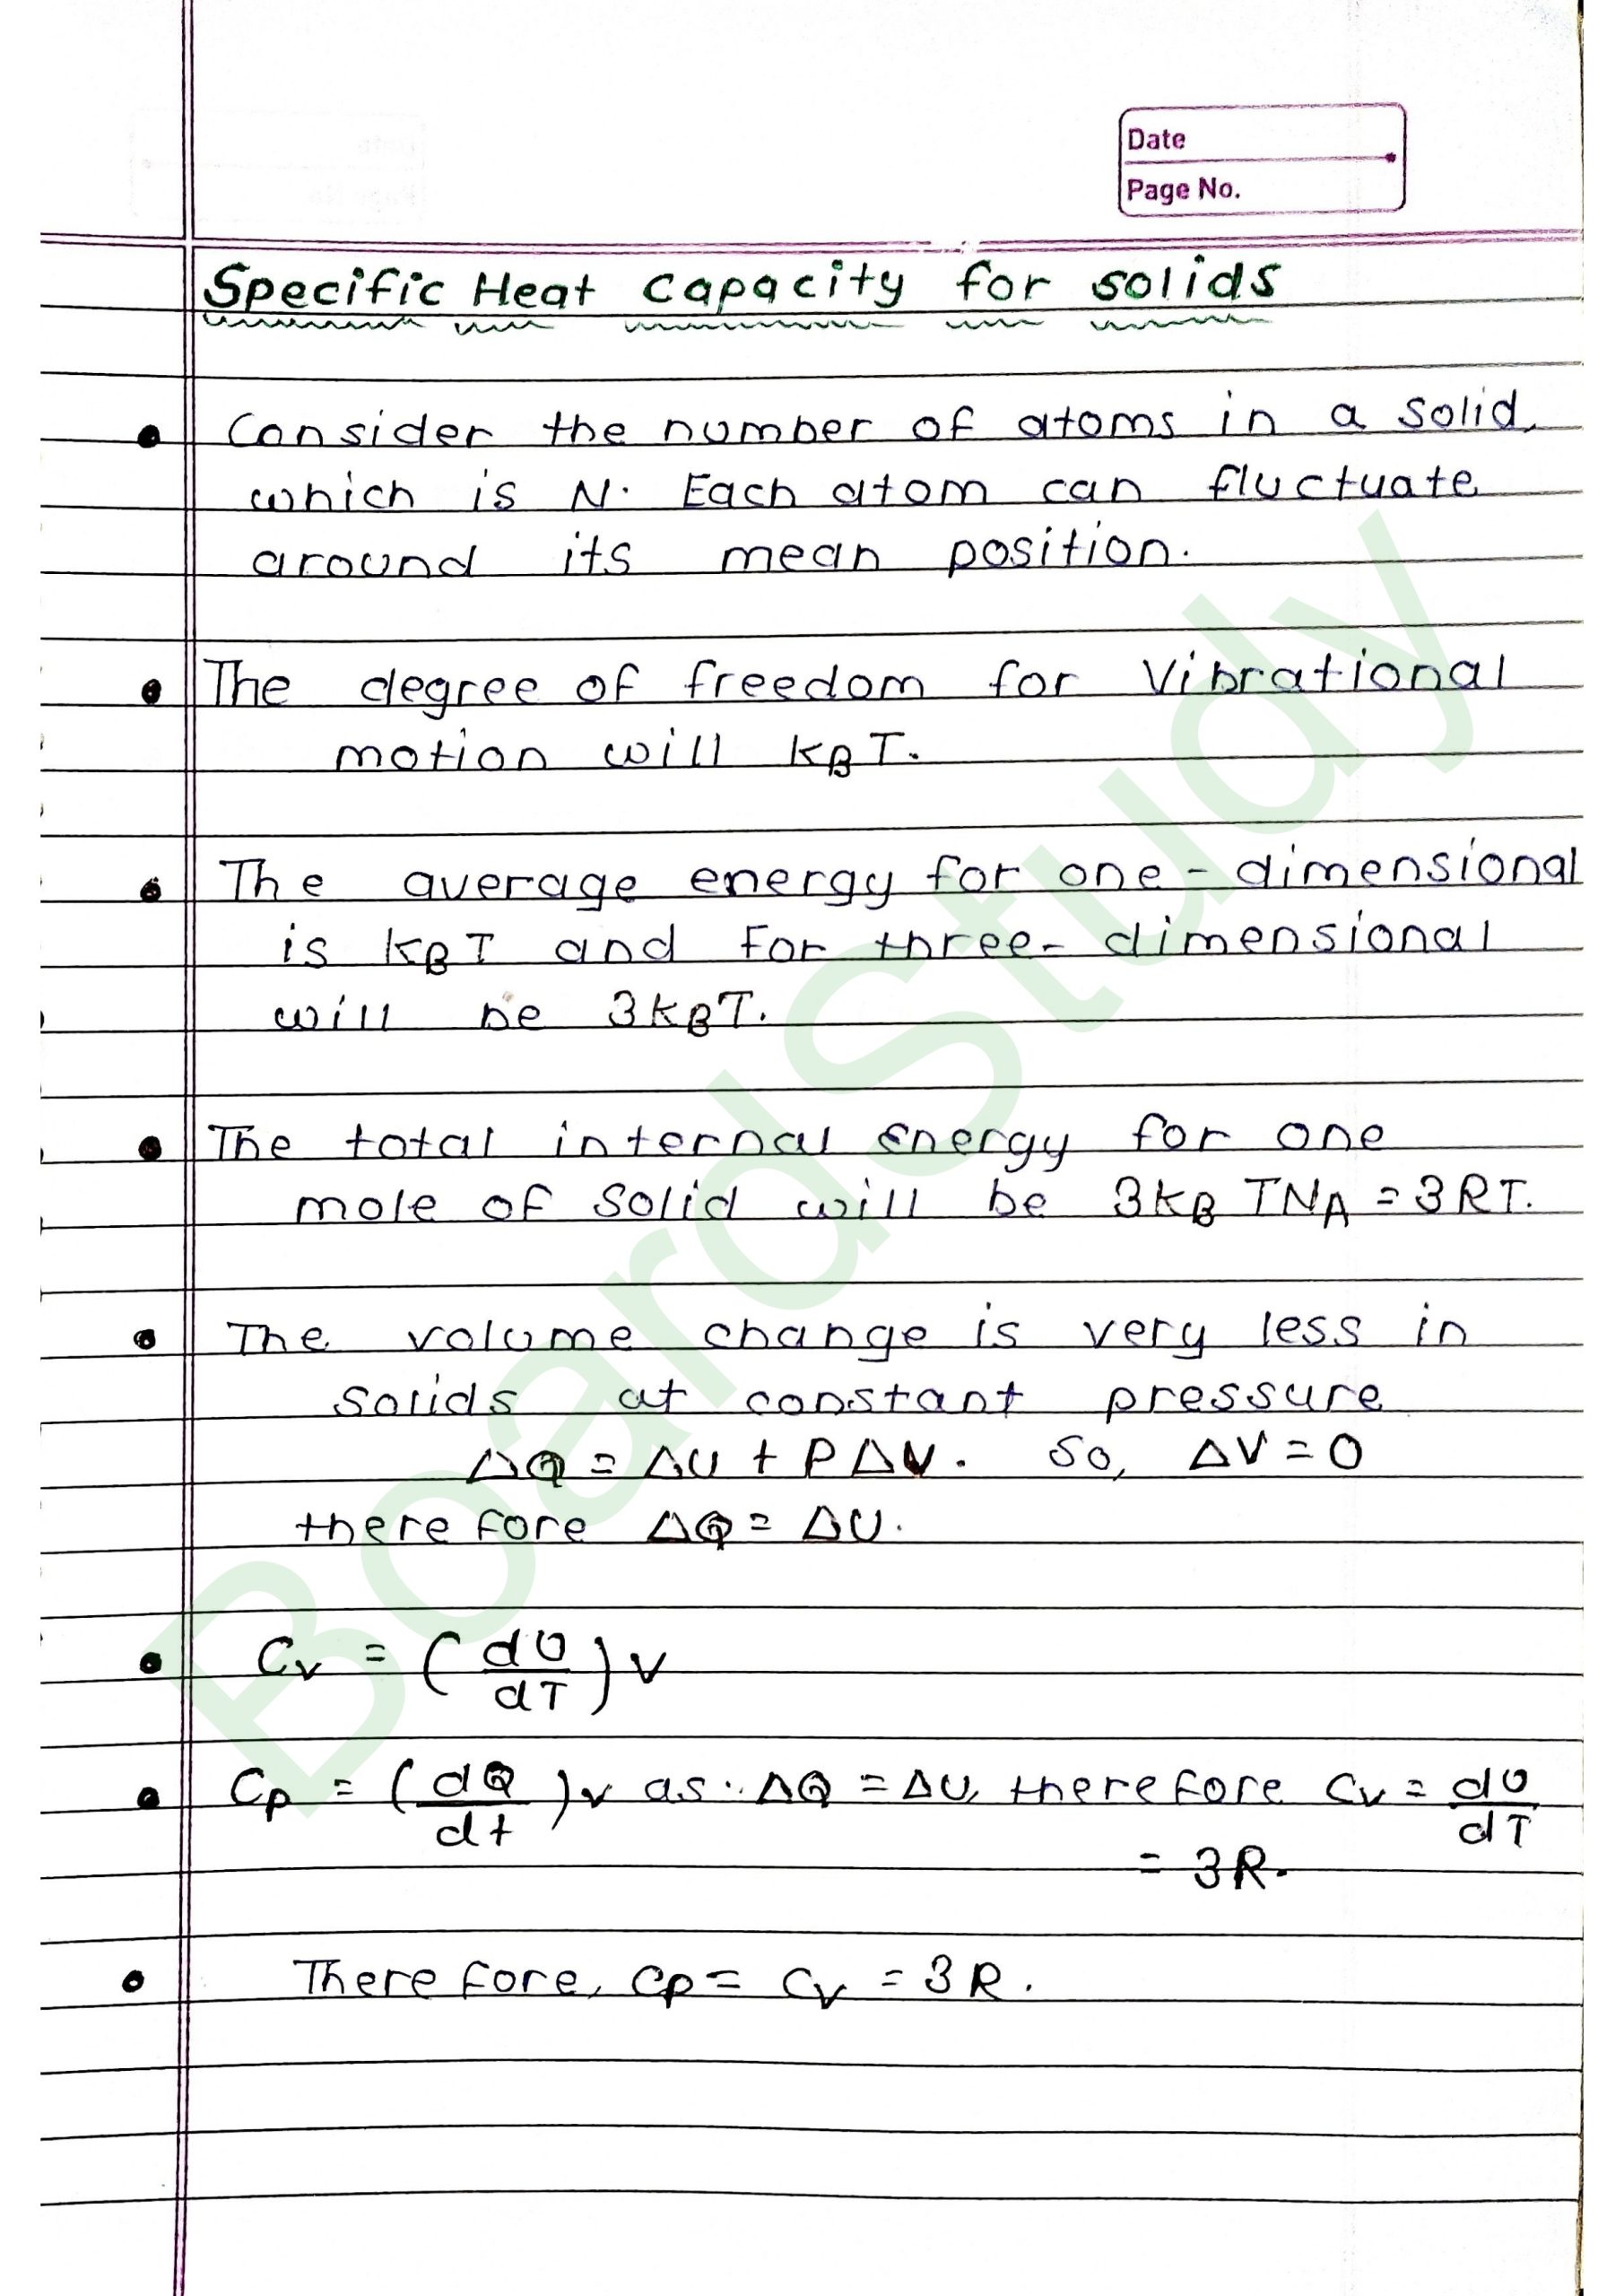 Date
Page No.
Specific Heat capacity for solids
• Consider the number of atoms in a solid,
which is N. Each atom can fluctuate
around its mean position.
• The degree of freedom for Vibrational
motion will KBT.
• The average energy for one-dimensional
is KBT and For three-dimensional
will be 3KBT.
• The total internal energy for one
mole of solid will be 3KB TNA = 3RT.
• The volume change is very less in
solids at constant pressure
ΔQ = ΔU + PΔV. So, ΔV = 0
therefore ΔQ = ΔU.
• Cv = (dU/dT)v
• Cp = (dQ/dt)v as ∴ ΔQ = ΔU, therefore Cv = dU/dT
= 3R.
• Therefore, Cp = Cv = 3R.
BoardStudy